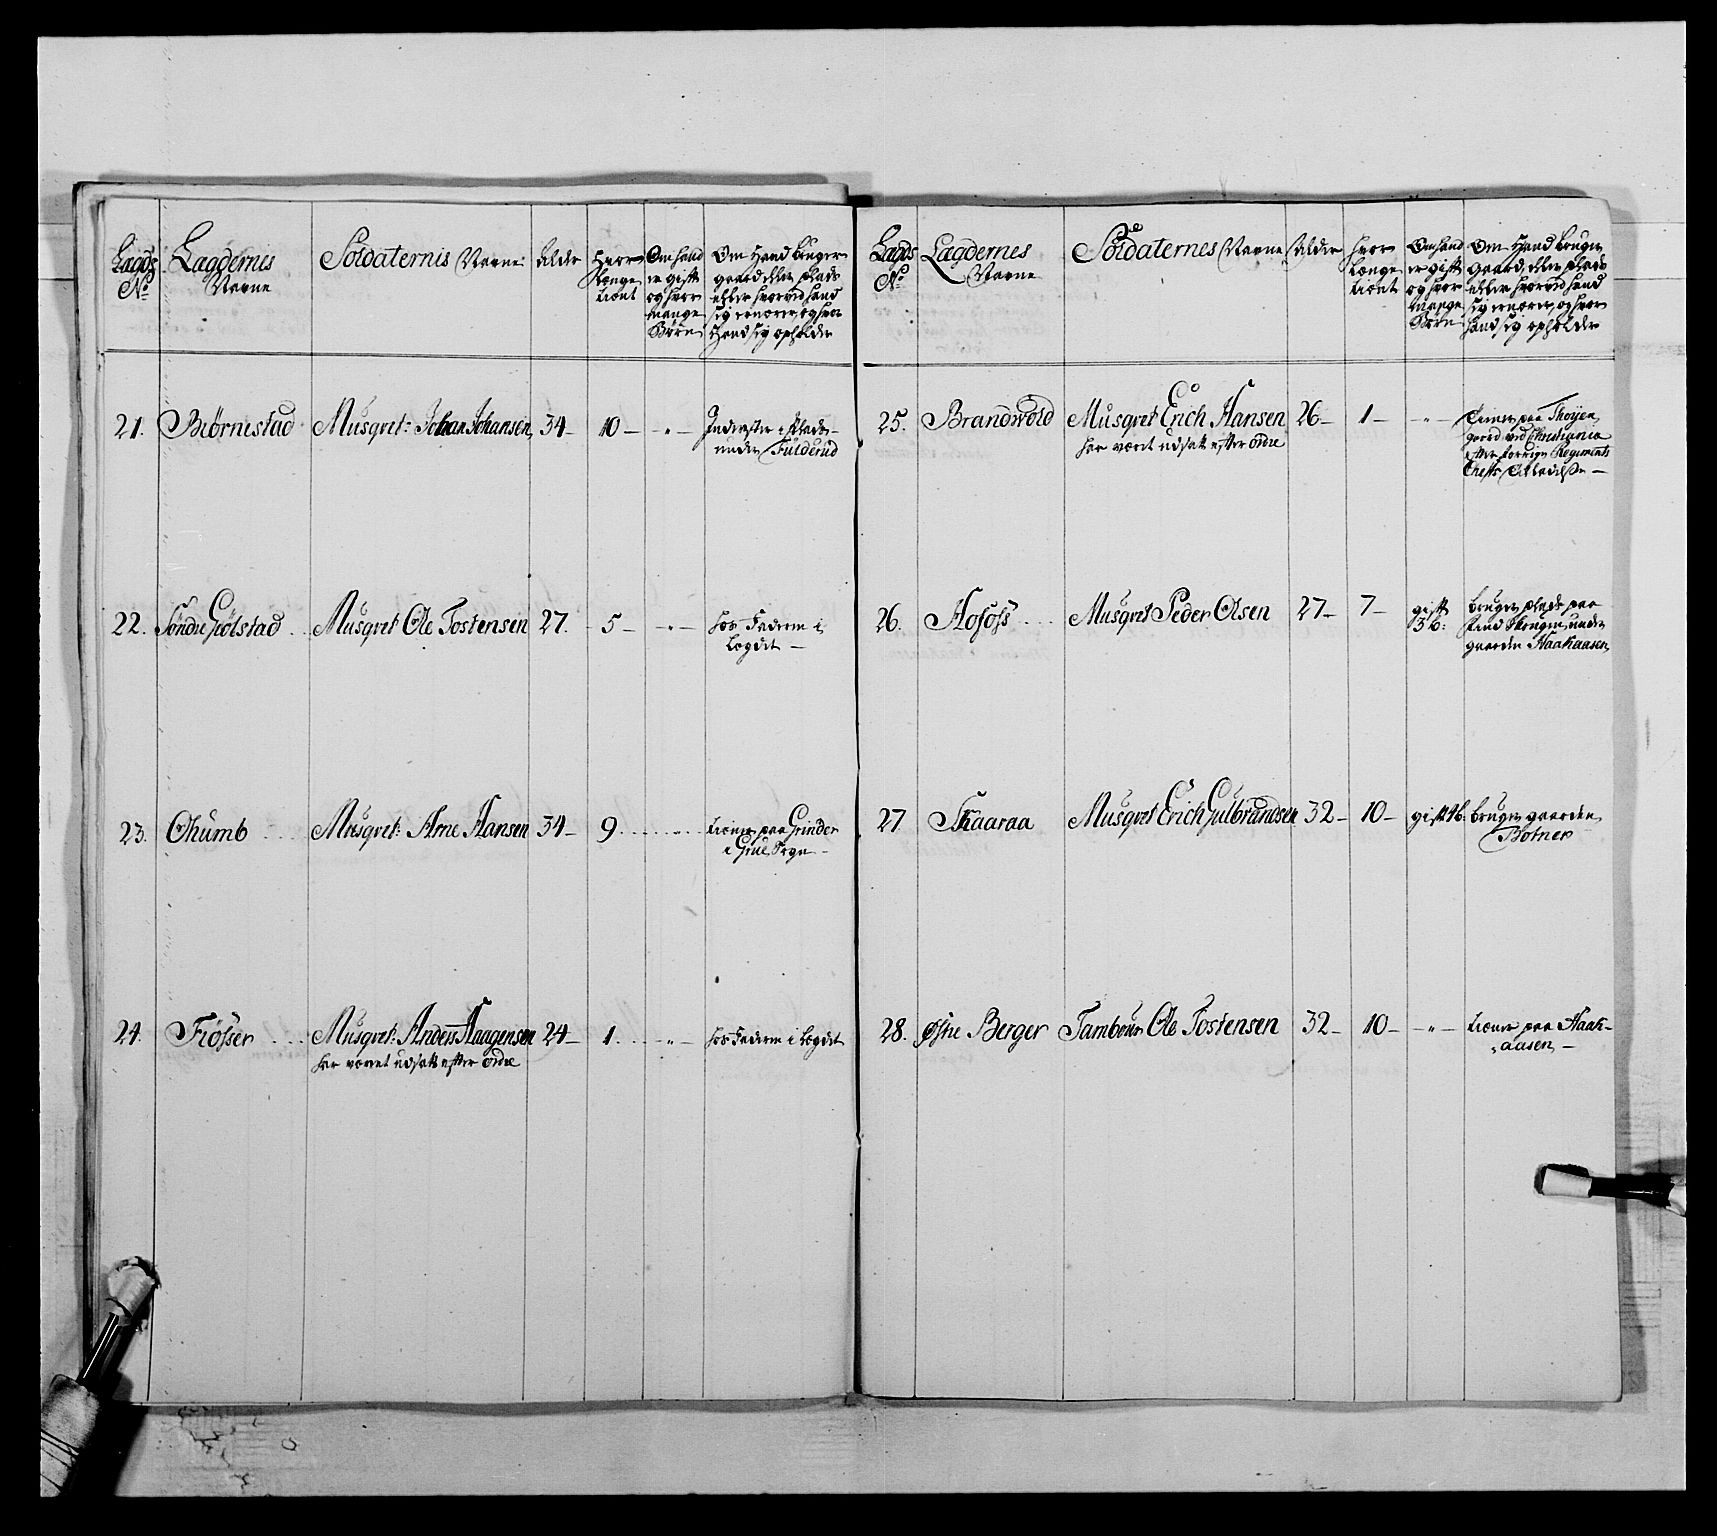 Lagds No
Lagdernis Navne
Soldaternis Navne
Alder
Hvor Længe tient
Om hand er gift og hvor mange Børn
Om Hand bruger gaard eller plads eller hvorved hand sig ernærer, og hvor Hand sig opholder
21. Biörnestad Musqvet: Johan Johansen 34– 10– –„–
Inderster i Plads–
under Fulderud
22. Söndre Gölstad .. Musqvet Ole Tostensen 27. 5– –„–
hos Faderen i
Legdet –
23. Ohumb .... Musqvet: Arne Hansen 34– 9. ...„..
tiener paa Grinder
i Grue Sogn –
24. Frösser .... Musqvet: Anders Haagensen 24– 1. ... –„– hos Faderen i Legdet
har været udsatt efter ordre
Lagds No
Lagdernes Navne
Soldaternes Navne
Alder
hvor Længe tient
Om hand er gift og hvor mange Børn
Om Hand bruger gaard, eller plads eller hvorved hand sig ernærer, og hvor hand sig opholder
25. Brandwold Musqvet Erich Hansen 26– 1– –„–
har været udsatt efter ordre
Tiener paa Thoÿen
gaard ved Christiania
efter forrige Regiments
Chefs Tilladelse –
26. Hofoss .... Musqvet Peder Olsen 27– 7–
gift
3 b:
bruger plads paa
Find Skougen under
gaarden Haakaasen
27 Skaaraa Musqvet Erich Gulbrandsen 32– 10– gift 4b: bruger gaarden
Botner
28. Östre Berger Tambour Ole Tostensen 32– 10– –„–
tiener paa Haak-
aasen –